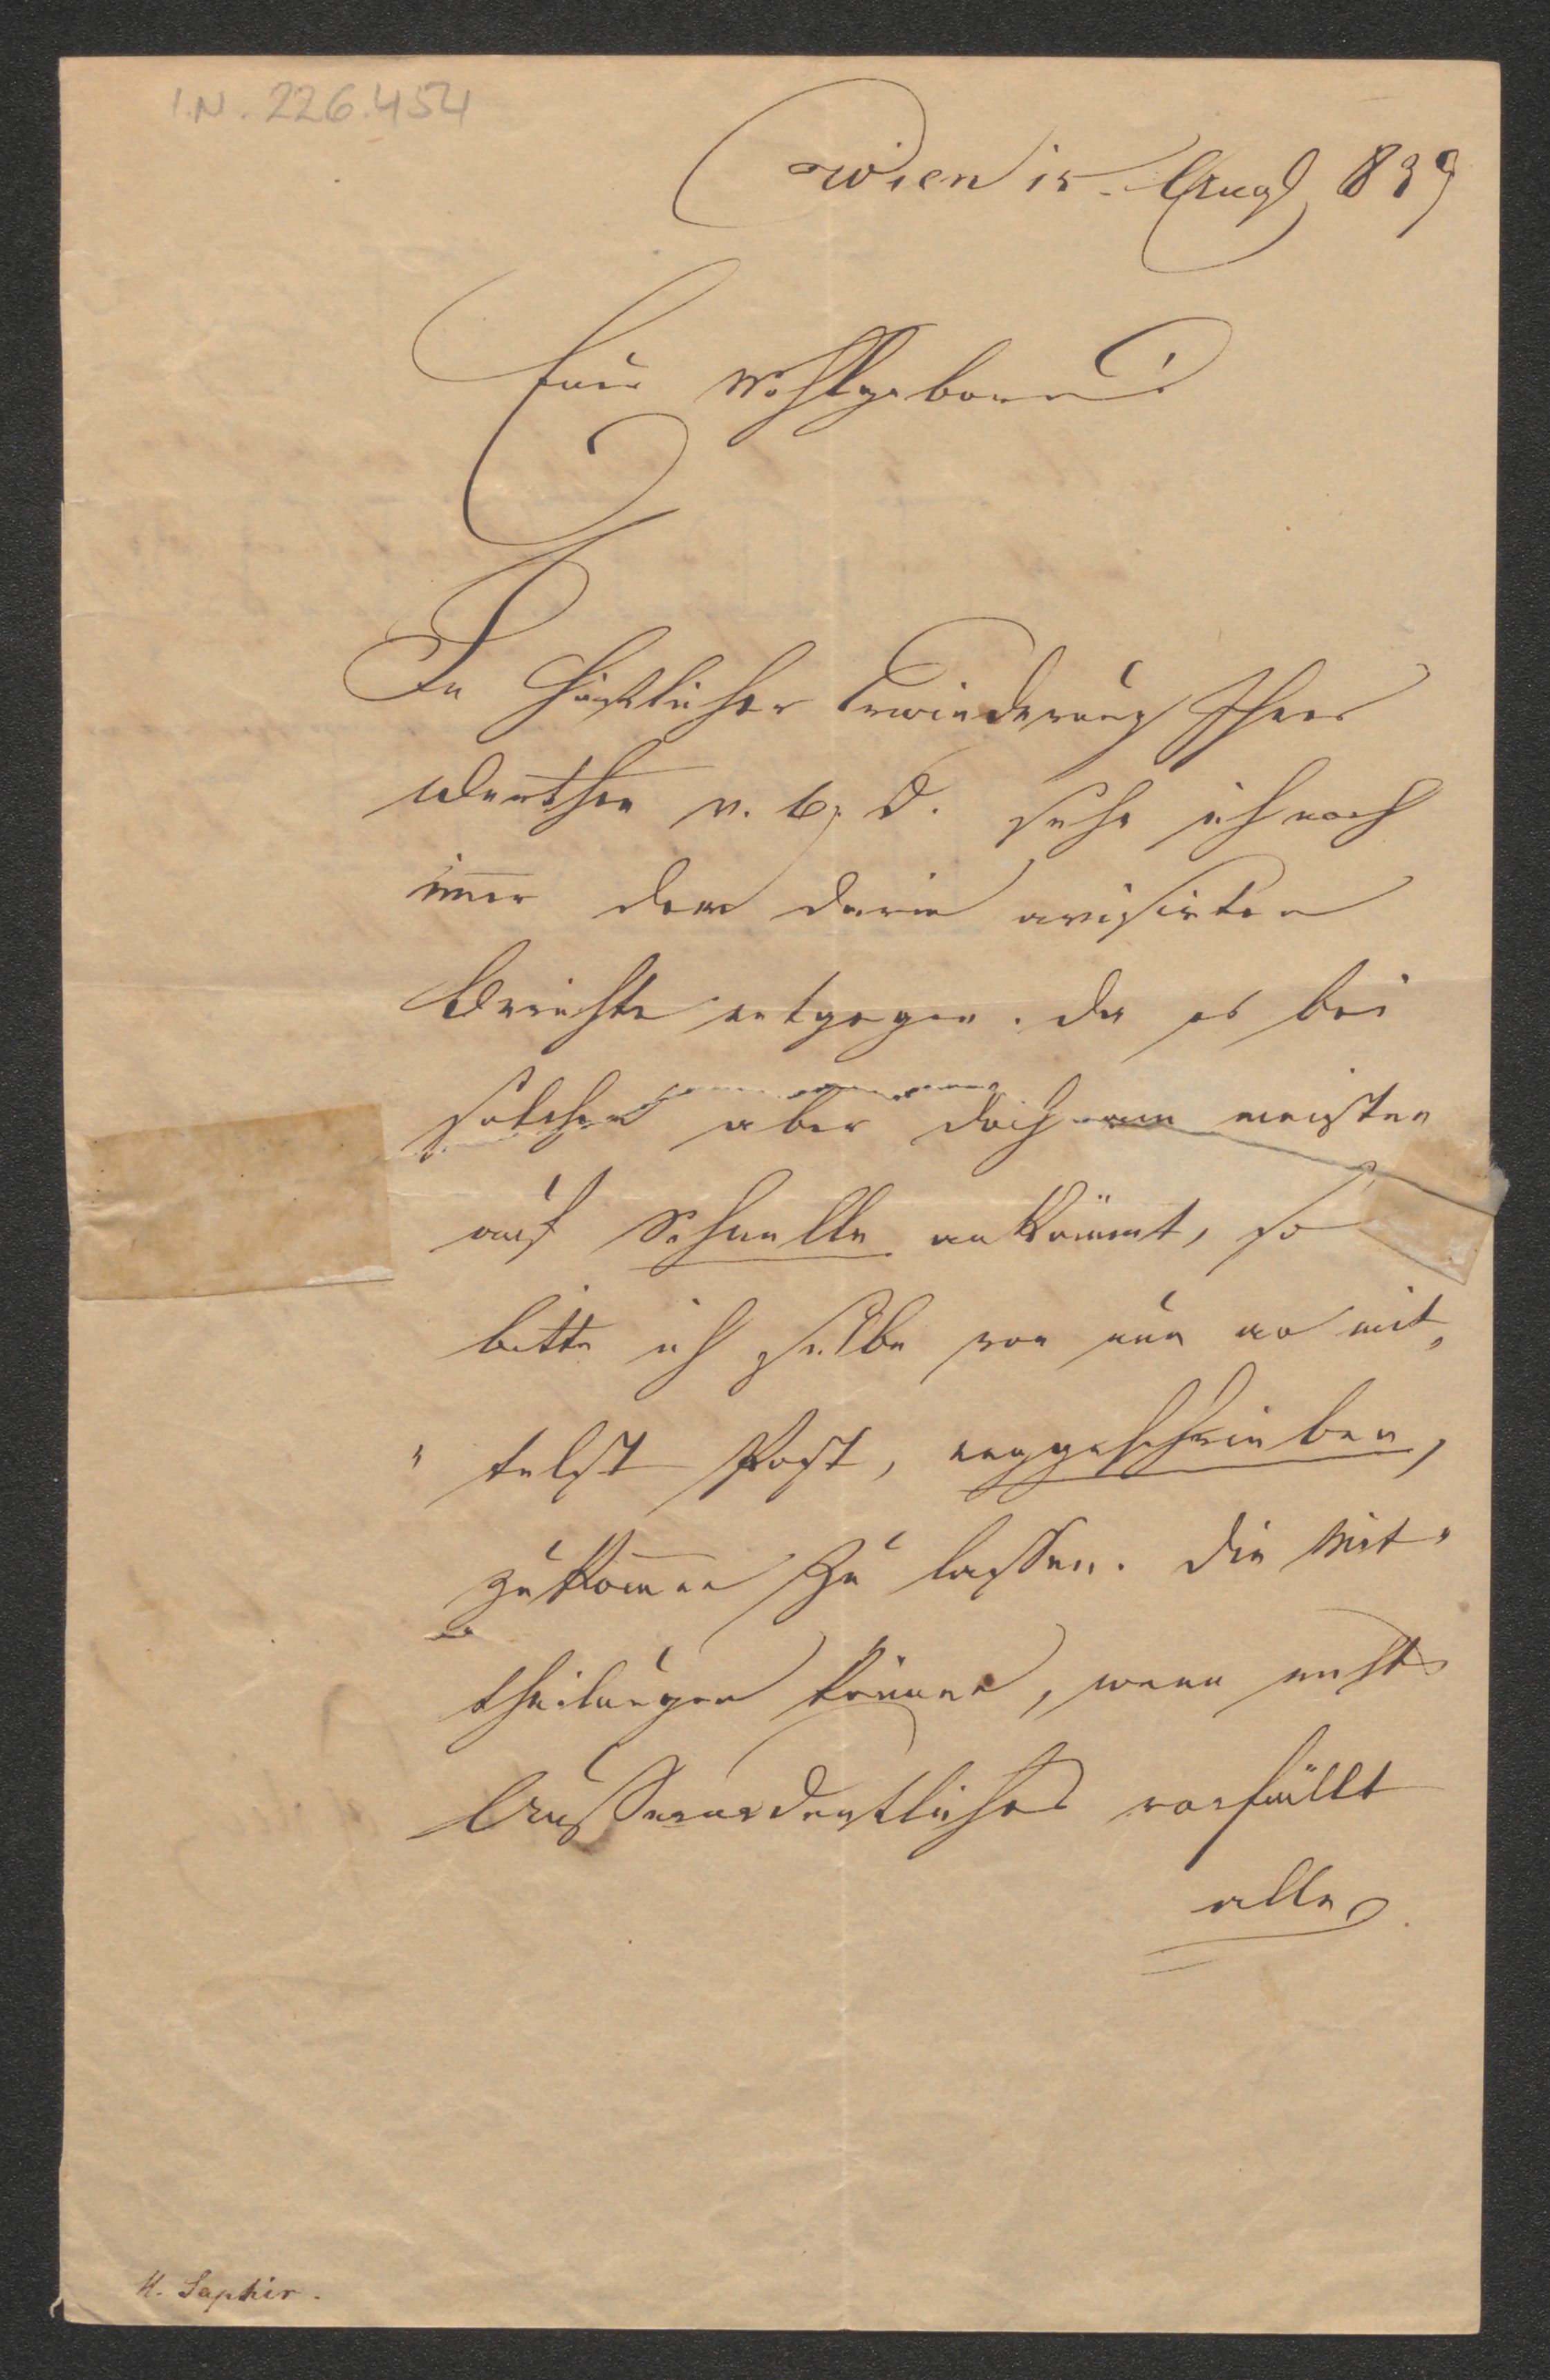 I.N. 226.454
Wien 15. Aug 839
Euer Wohlgeboren!
In höflicher Erwiederung Ihres
Werthen v. 6. d. sehe ich noch
im̅er dem darin avisirten
Berichte entgegen. Da es bei
solchen aber doch am meisten
auf Schnelle ankömmt, so
bitte ich selbe von nun an mit„
„telst Post, enggeschrieben,
zukom̅en zu lassen. Die Mit„
theilungen können, wenn nichts
Außerordentliches vorfällt
alle
M. Saphir.